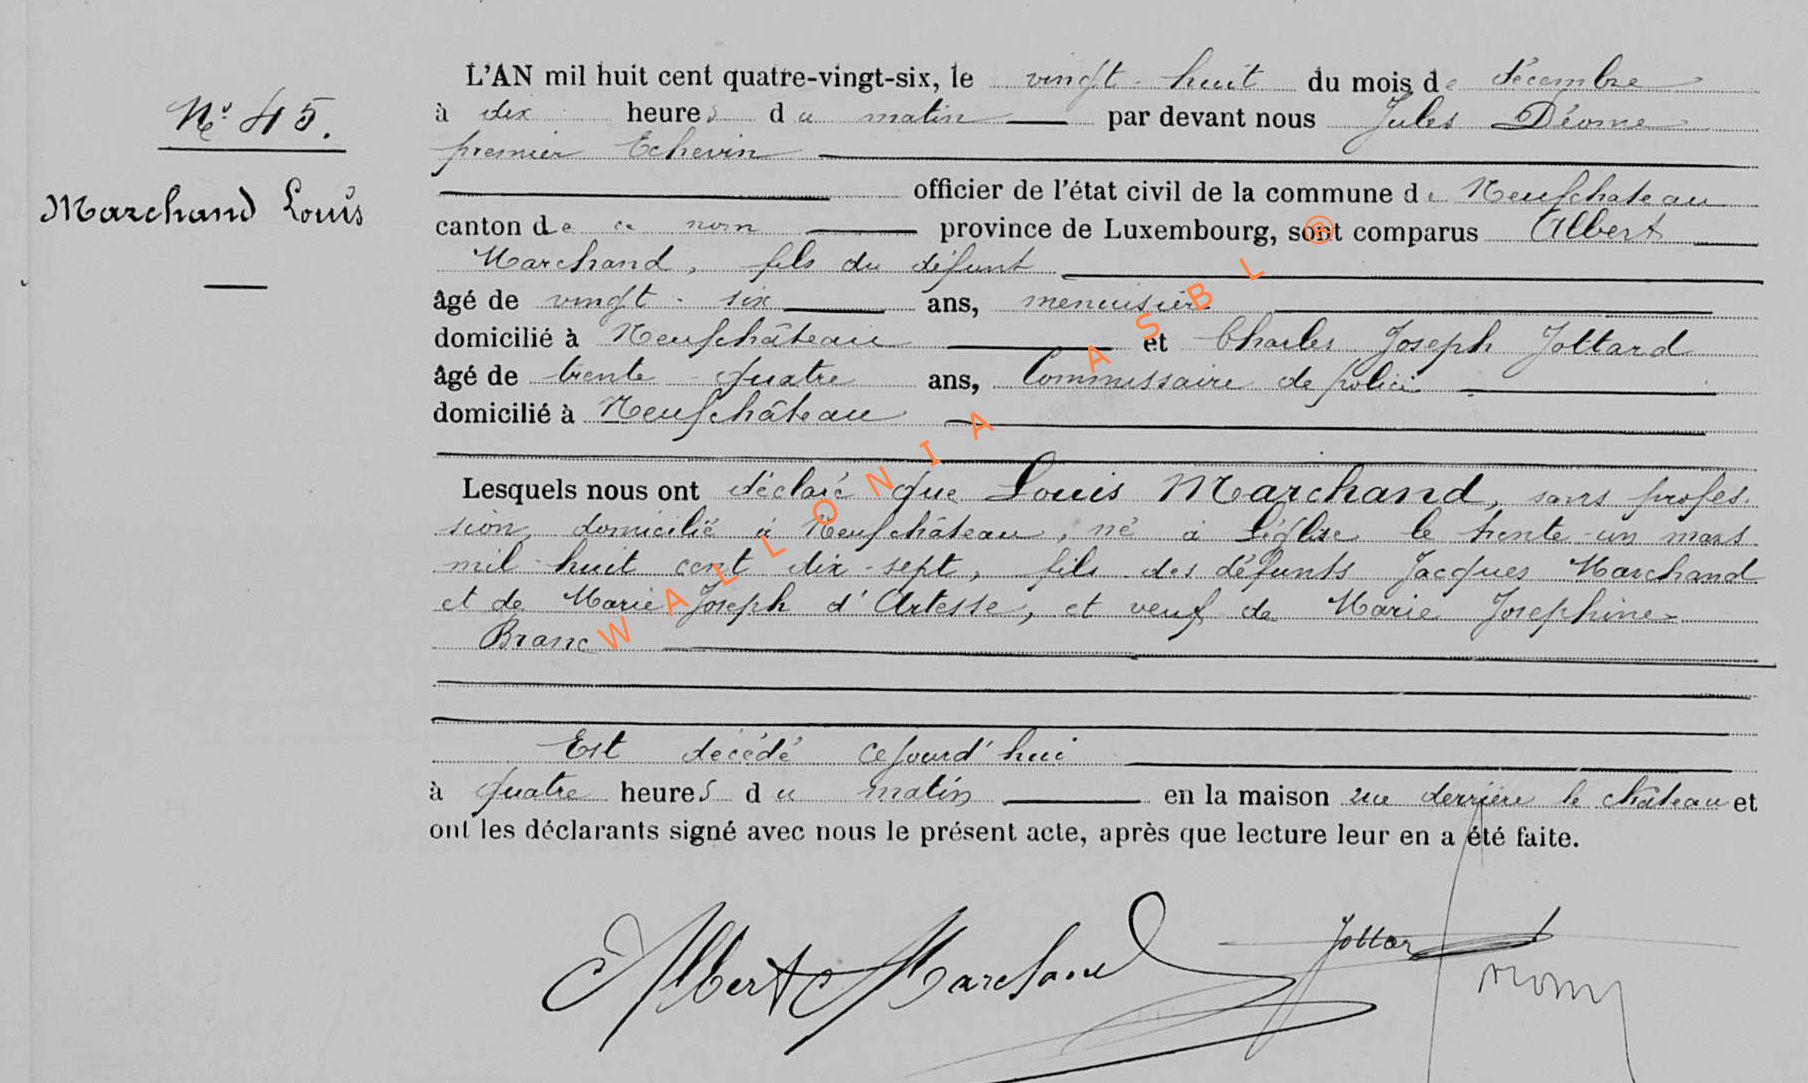 N° 45.
Marchand Louis
L'AN mil huit cent quatre-vingt-six, le vingt-huit du mois de décembre
à dix heures du matin par devant nous Jules Déome
premier Echevin
officier de l'état civil de la commune de Neufchateau
canton de ce nom province de Luxembourg, sont comparus Albert
Marchand, fils du défunt
âgé de vingt-six ans, menuisier
domicilié à Neufchâteau et Charles Joseph Jottard
âgé de trente-quatre ans, Commissaire de police
domicilié à Neufchâteau
Lesquels nous ont déclaré que Louis Marchand, sans profes-
sion, domicilié à Neufchâteau, né à Léglise le trente-un mars
mil-huit cent dix-sept, fils des défunts Jacques Marchand
et de Marie Joseph d'Artesse, et veuf de Marie Josephine
Branc
Est décédé cejourd'hui
à quatre heures du matin en la maison rue derrière le château et
ont les déclarants signé avec nous le présent acte, après que lecture leur en a été faite.
Albert Marchand Jottard
WALLONIA ASBL ®